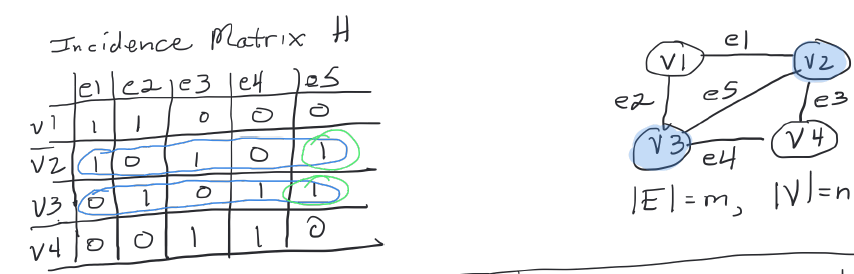 Incidence Matrix H
e1 e2 e3 e4 e5
v1 1 1 0 0 0
v2 1 0 1 0 1
v3 0 1 0 1 1
v4 0 0 1 1 0
e1
v1 v2
e2 e5 e3
v3 v4
e4
|E|=m, |V|=n